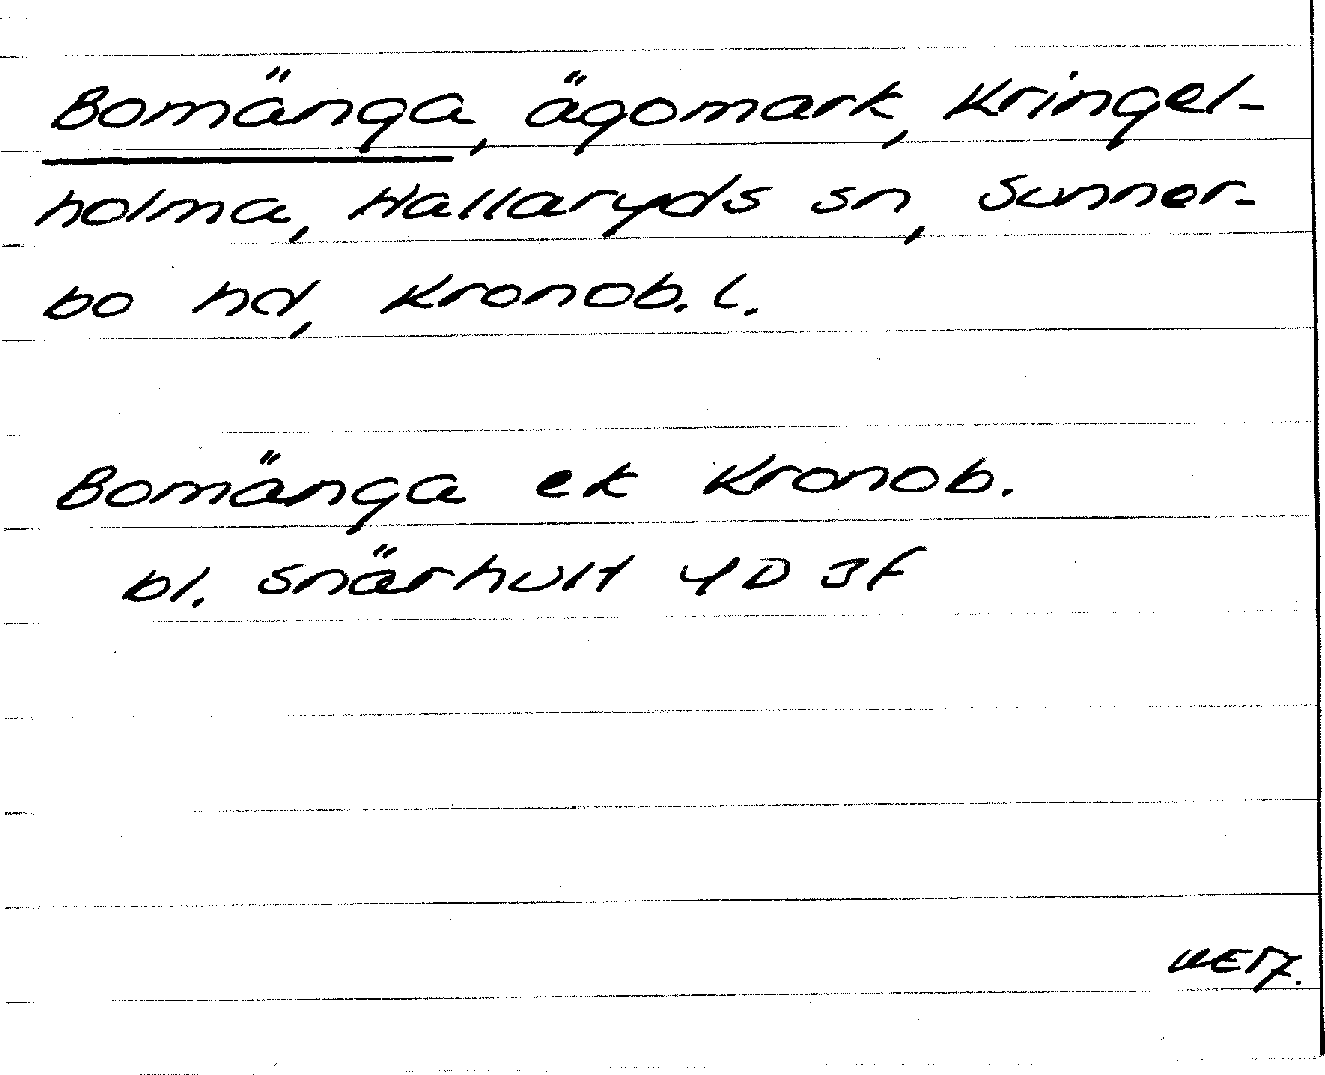 Bomänga, ägomark, Kringel-
holma, Hallaryds sn, Sunner-
bo hd, Kronob. l.
Bomänga ek Kronob.
bl. Snärhult 4D 3f